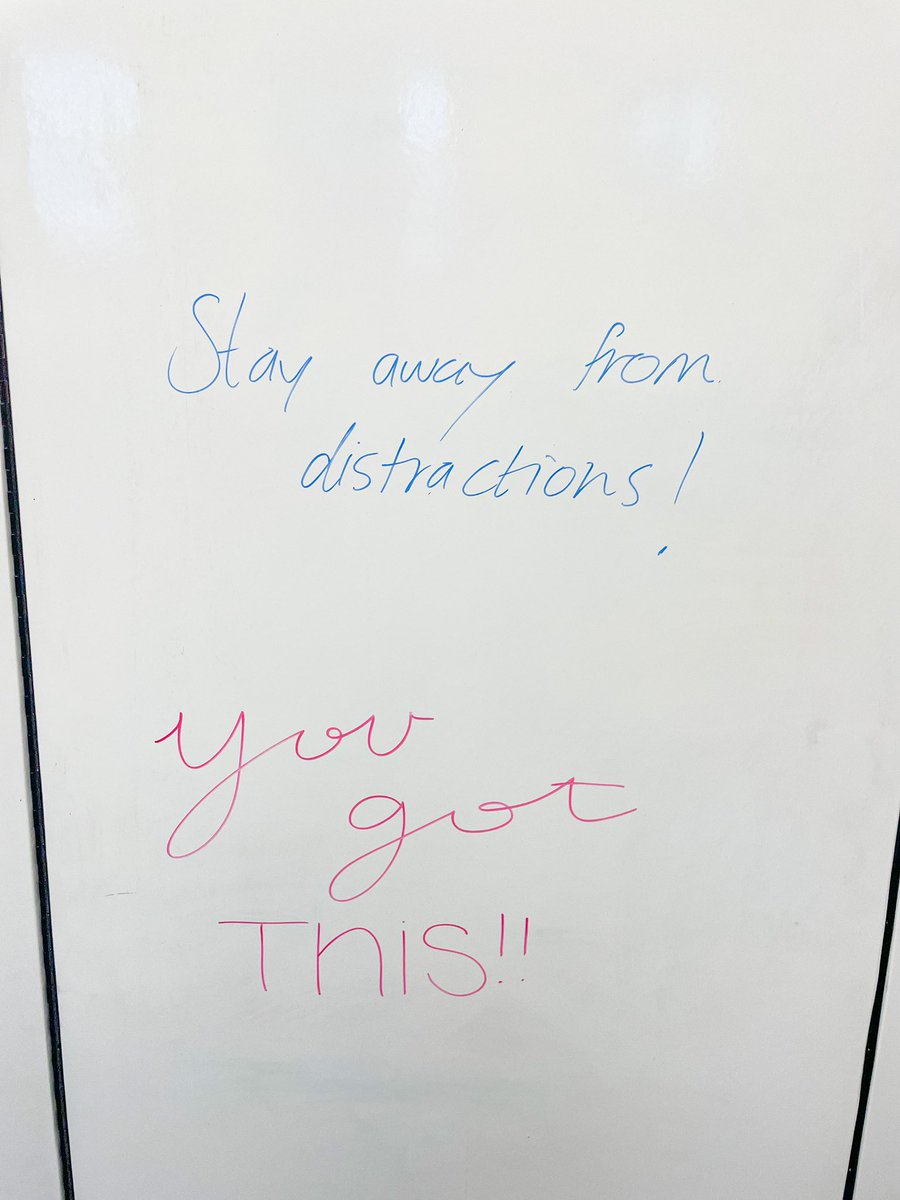 Stay away from
distractions!
you
got
THiS!!